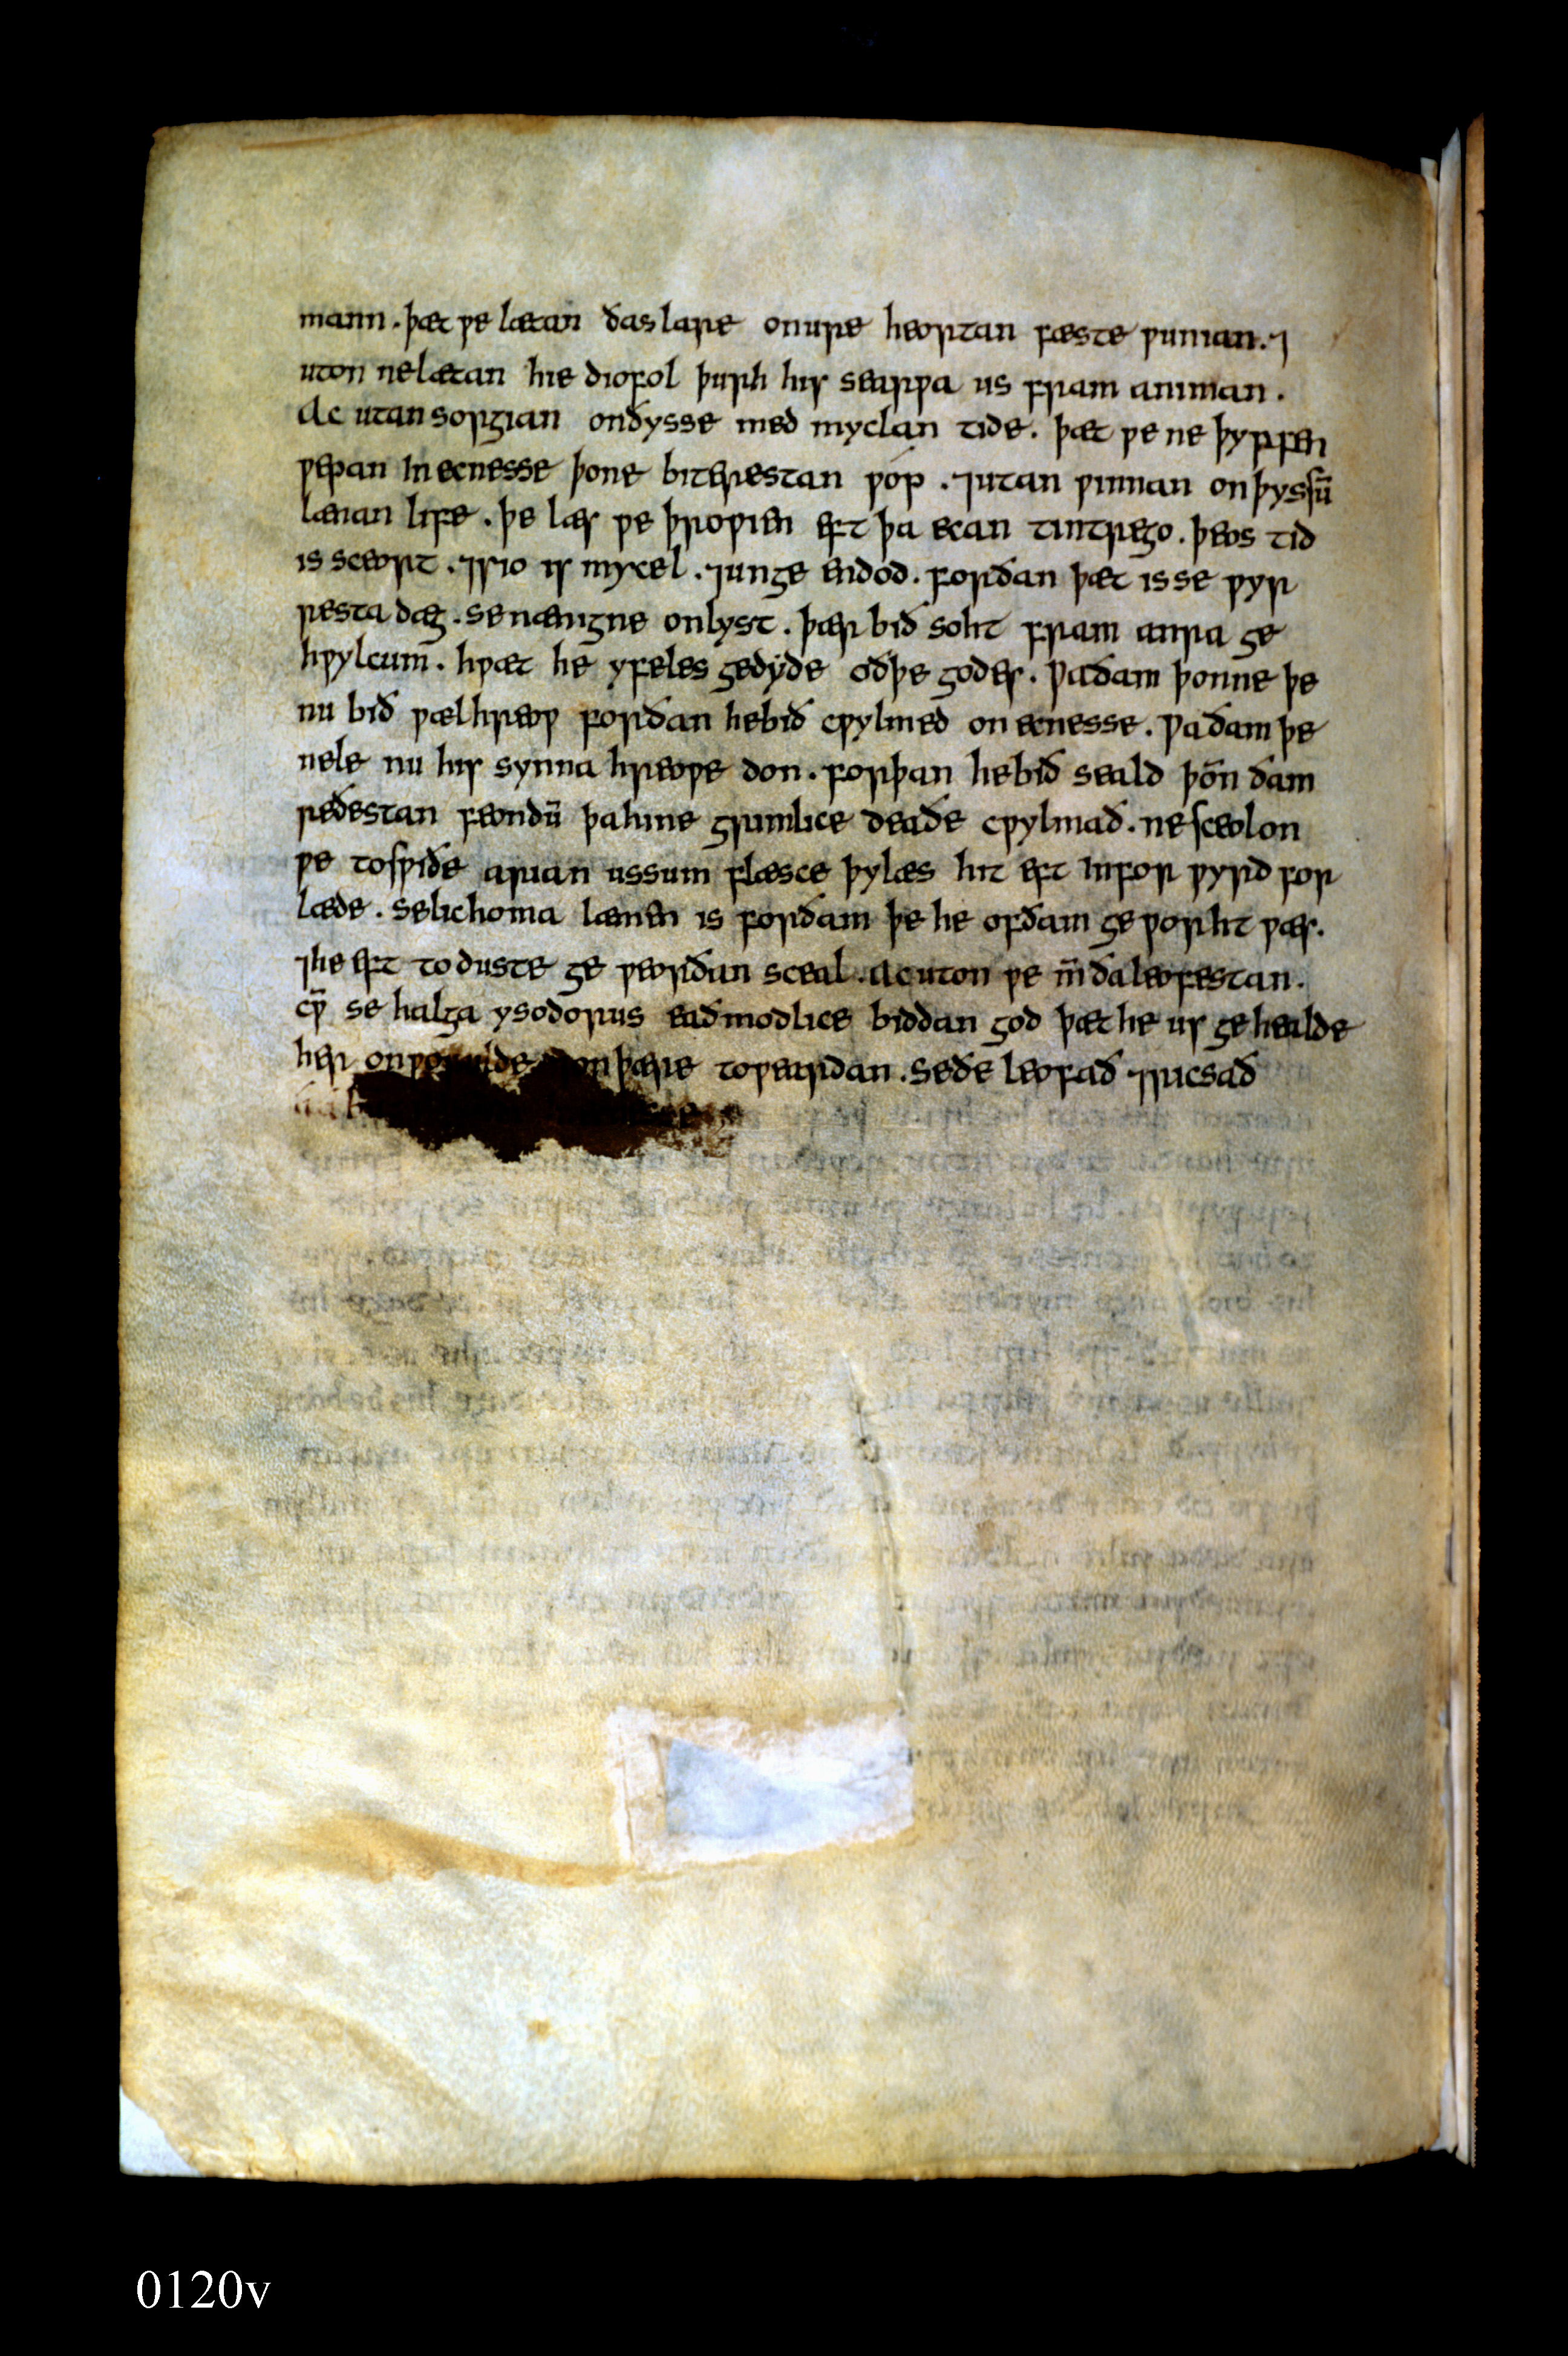 mann. þæt ƿe lætan ðas lare on ure heortan fæste ƿunian. ⁊
uton ne lætan hie diofol þurh his searƿa us fram animan.
Ac utan sorgian on ðysse med myclan tide. þæt ƿe ne þyrfen
ƿepan in ecnesse þone biterestan ƿóp. ⁊utan ƿinnan on þyssū
lænan life. þe læs ƿe þroƿien eft þa ecan tintrego. þeos tid
is sceort. ⁊sio is mycel. ⁊unge endod. forðan þæt is se ƿyr
resta dæg. se nænigne onlyst. þær bið soht fram anra ge
hƿylcum. hƿæt he yfeles gedyde oðþe godes. ƿa ðam þonne þe
nu bið ƿælhreoƿ forðan he bið cƿylmed on ecnesse. ƿa ðam þe
nele nu his synna hreoƿe don. forþan he bið seald þōn ðam
reðestan feondū þa hine grimlice deaðe cƿylmað. ne sceolon
ƿe to sƿiðe arian ussum flæsce þylæs hit eft in forƿyrd for
læde. se lichoma læmen is forðam þe he of ðam geƿorht ƿæs.
⁊he eft to duste geƿeorðan sceal. Ac uton ƿe m̄ ða leofestan.
cƿ̄ se halga ysodorius eadmodlice biddan god þæt he us geheilde
her on ƿorulde ⁊on þære toƿeardan. se ðe leofað ⁊ricsað